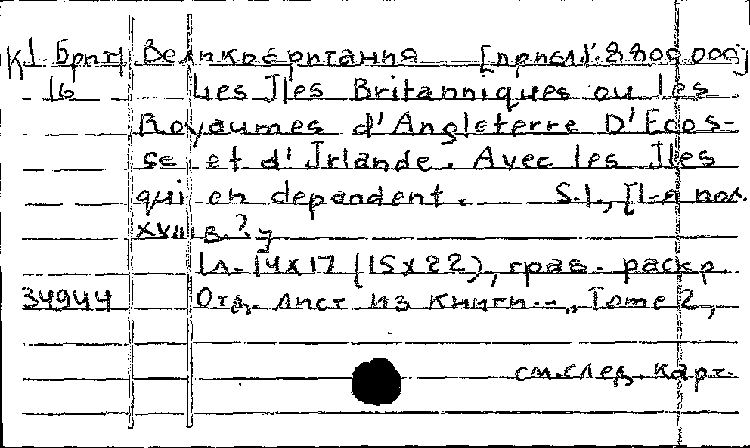 К 1 Брит Великобритания [прибл. 1:8 800 000]
16 Les Iles Britanniques ou les
Royaumes d'Angleterre D'Ecos-
se et d'Irlande. Avec les Iles
qui en dependent. S.l., [1-я пол.
XVIII в.?]
1 л. 14x17 (15x22), грав. раскр.
34944 Отд. лист из книги... "Tome 2,
см. след. карт.